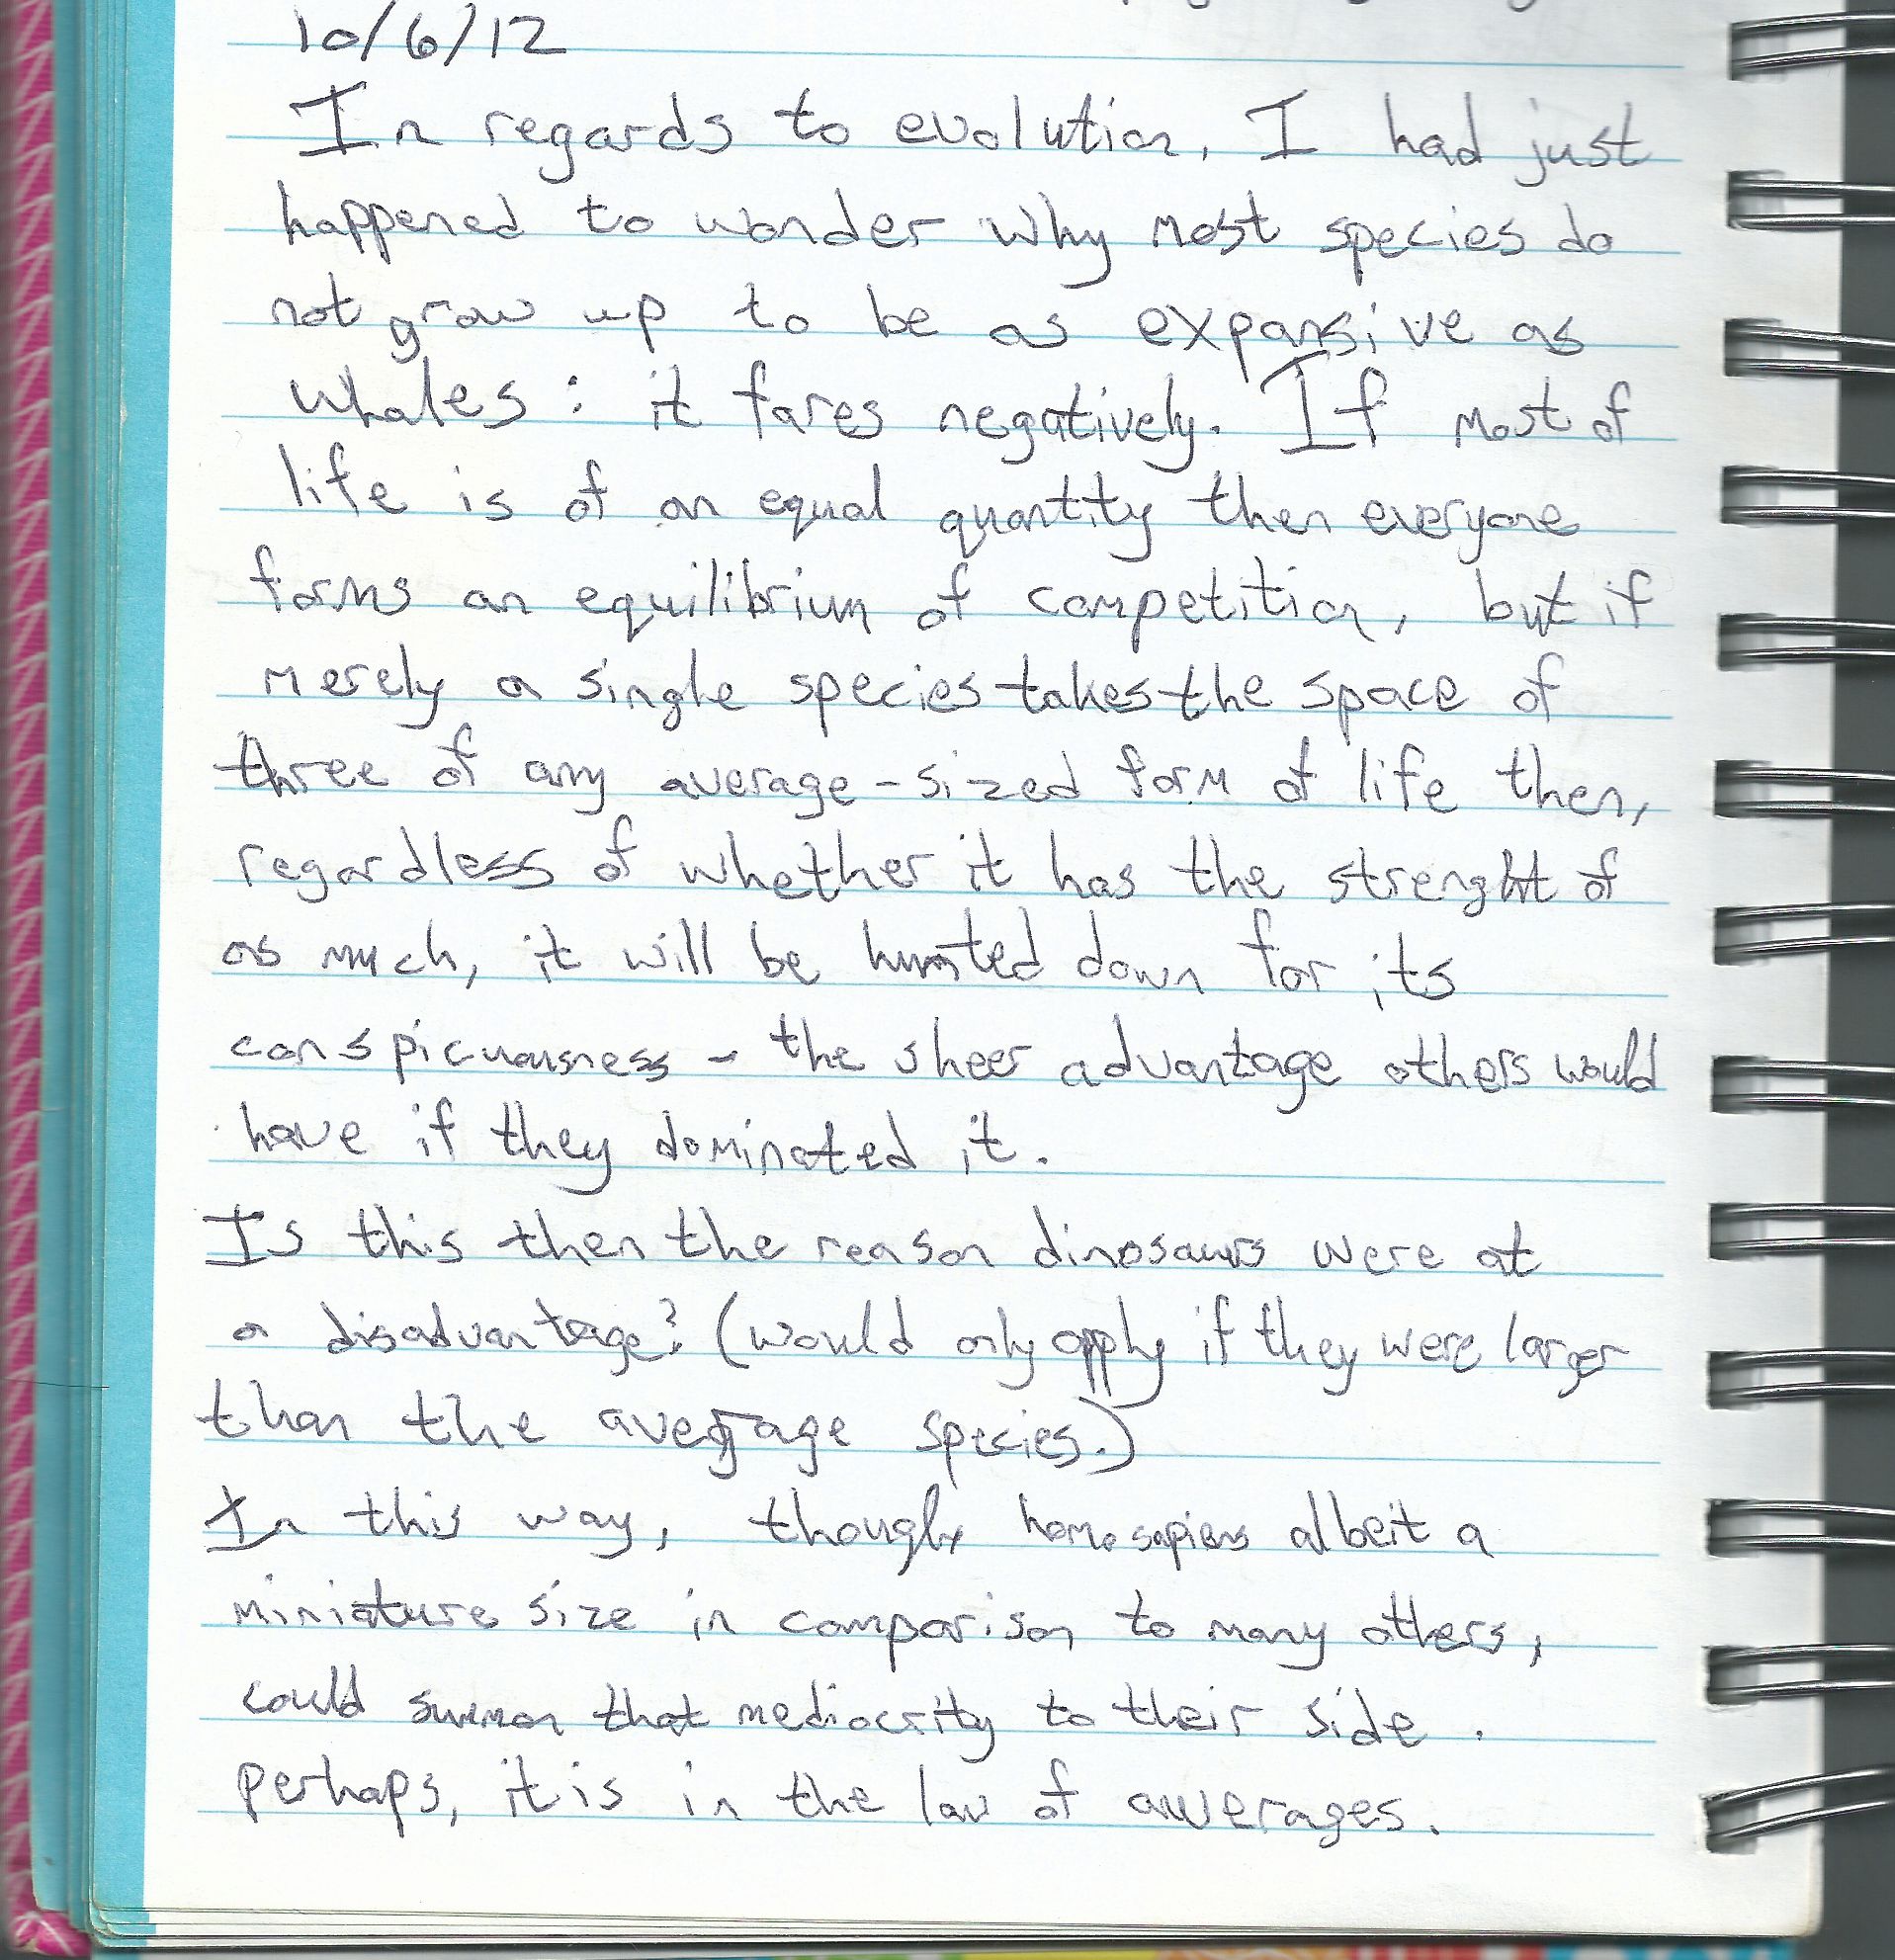 10/6/12
In regards to evolution, I had just
happened to wonder why most species do
not grow up to be as expansive as
whales: it fares negatively. If most of
life is of an equal quantity then everyone
forms an equilibrium of competition, but if
merely a single species takes the space of
three of any average-sized form of life then,
regardless of whether it has the strenght of
as much, it will be hunted down for its
conspicuousness - the sheer advantage others would
have if they dominated it.
Is this then the reason dinosaurs were at
a disadvantage? (would only apply if they were larger
than the average species.)
In this way, though homo sapiens albeit a
miniature size in comparison to many others,
could summon that mediocrity to their side.
perhaps, it is in the law of averages.